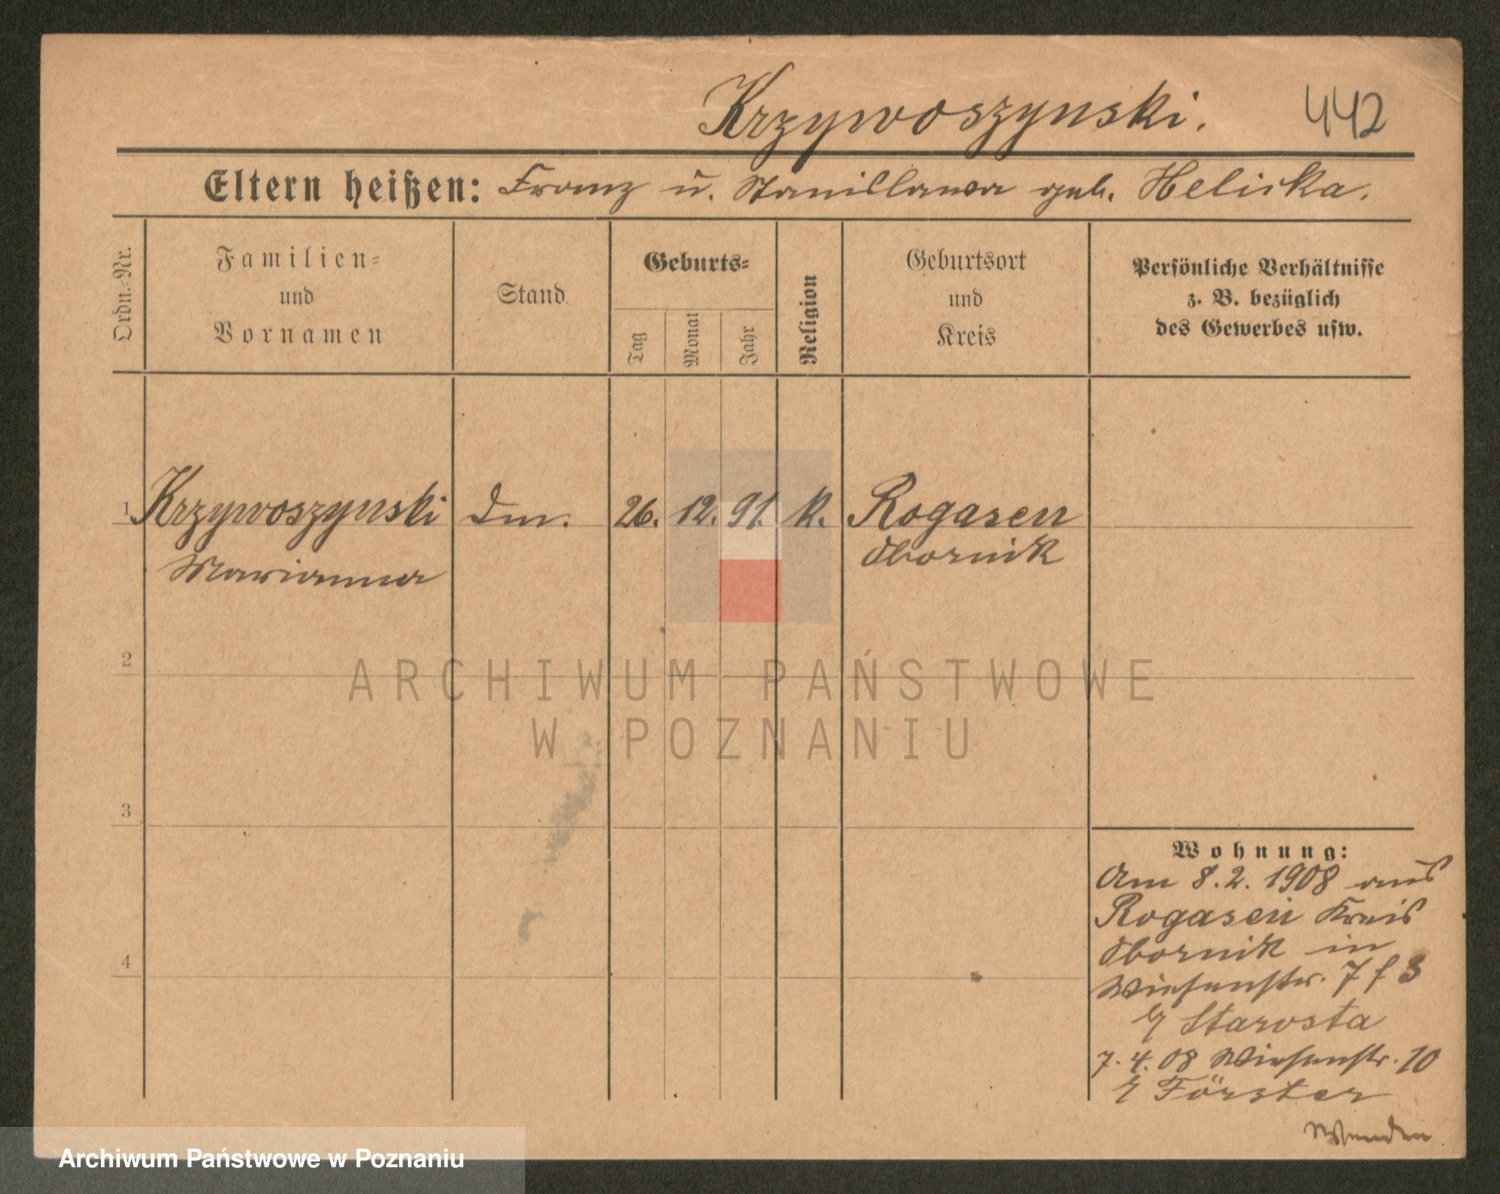 Krzywoszynski. 442
Eltern heißen: Franz u. Stanislawa geb. Heliska.
Ordn.-Nr.
Familien-
und
Vornamen
Stand
Geburts-
Tag
Monat
Jahr
Religion
Geburtsort
und
Kreis
Persönliche Verhältnisse
z. B. bezüglich
des Gewerbes usw.
1 Krzywoszynski Dm. 26. 12. 91. K. Rogasen
Marianna Obornik
2
3
4
Wohnung:
Am 8. 2. 1908 aus
Rogasen Kreis
Obornik in
Wiesenstr. 7 f 3
b/ Starosta
7. 4. 08 Wiesenstr. 10
b/ Förster
Wenden
ARCHIWUM PAŃSTWOWE
W POZNANIU
Archiwum Państwowe w Poznaniu